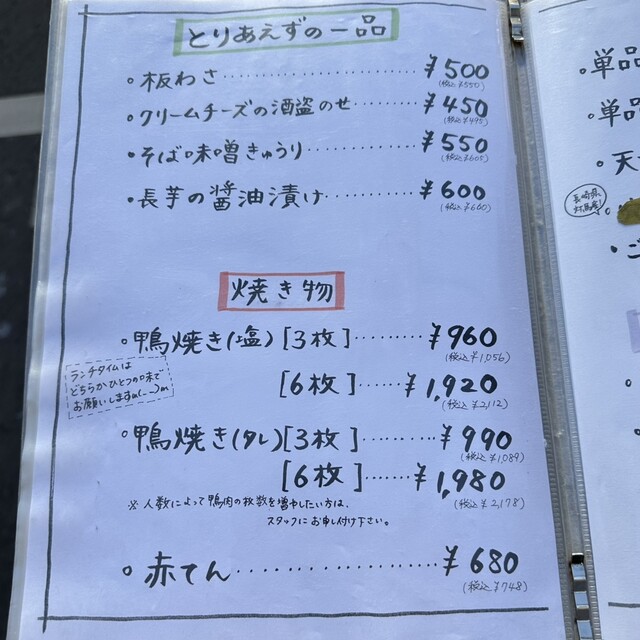 とりあえずの一品
・板わさ……………… ¥500
(税込¥550)
・クリームチーズの酒盗のせ……… ¥450
(税込¥495)
・そば味噌きゅうり……………… ¥550
(税込¥605)
・長芋の醤油漬け……………… ¥600
(税込¥660)
焼き物
・鴨焼き(塩)[3枚]……… ¥960
(税込¥1,056)
ランチタイムは
どちらかひとつの味で
お願いしますm(__)m
[6枚]…… ¥1,920
(税込¥2,112)
・鴨焼き(タレ)[3枚]…… ¥990
(税込¥1,089)
[6枚]…… ¥1,980
(税込¥2,178)
※人数によって鴨肉の枚数を増やしたい方は、
スタッフにお申し付け下さい。
・赤てん……………… ¥680
(税込¥748)
・単品
・単品
・天
長崎県
対馬産